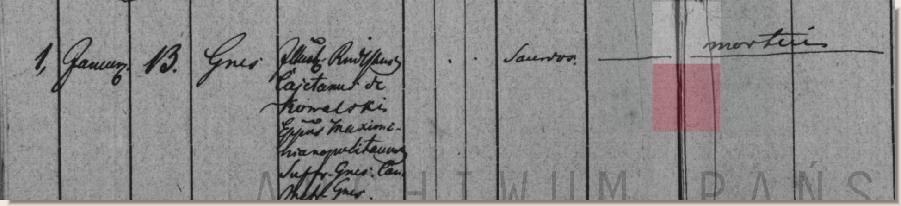 1, January. 13. Gnes. Sacerdos. mortuus
Illust. Rndssmus
Cajetanus de
Kowalski
Eppus Maximi-
hianopolitanus
Suffr. Gnes. Can.
Metr. Gnes.
ARCHIWUM PAŃS